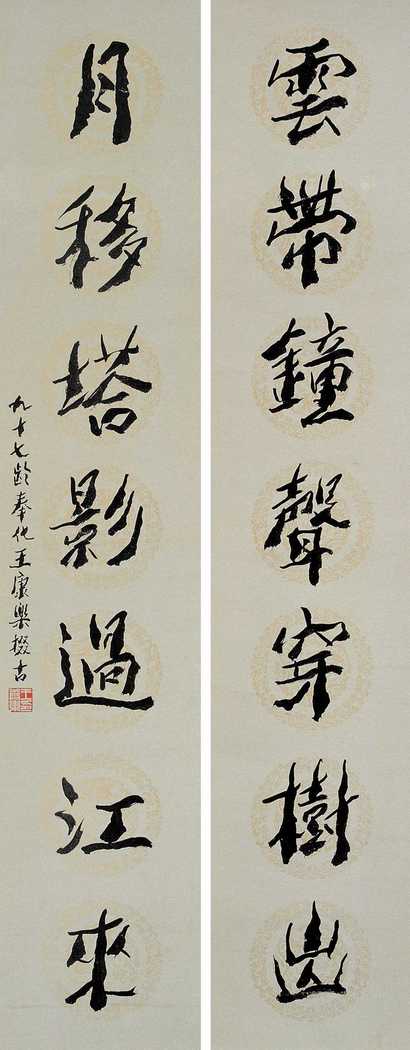 雲帶鐘聲穿樹出
月移塔影過江來
九十七齡奉化王康樂掇古